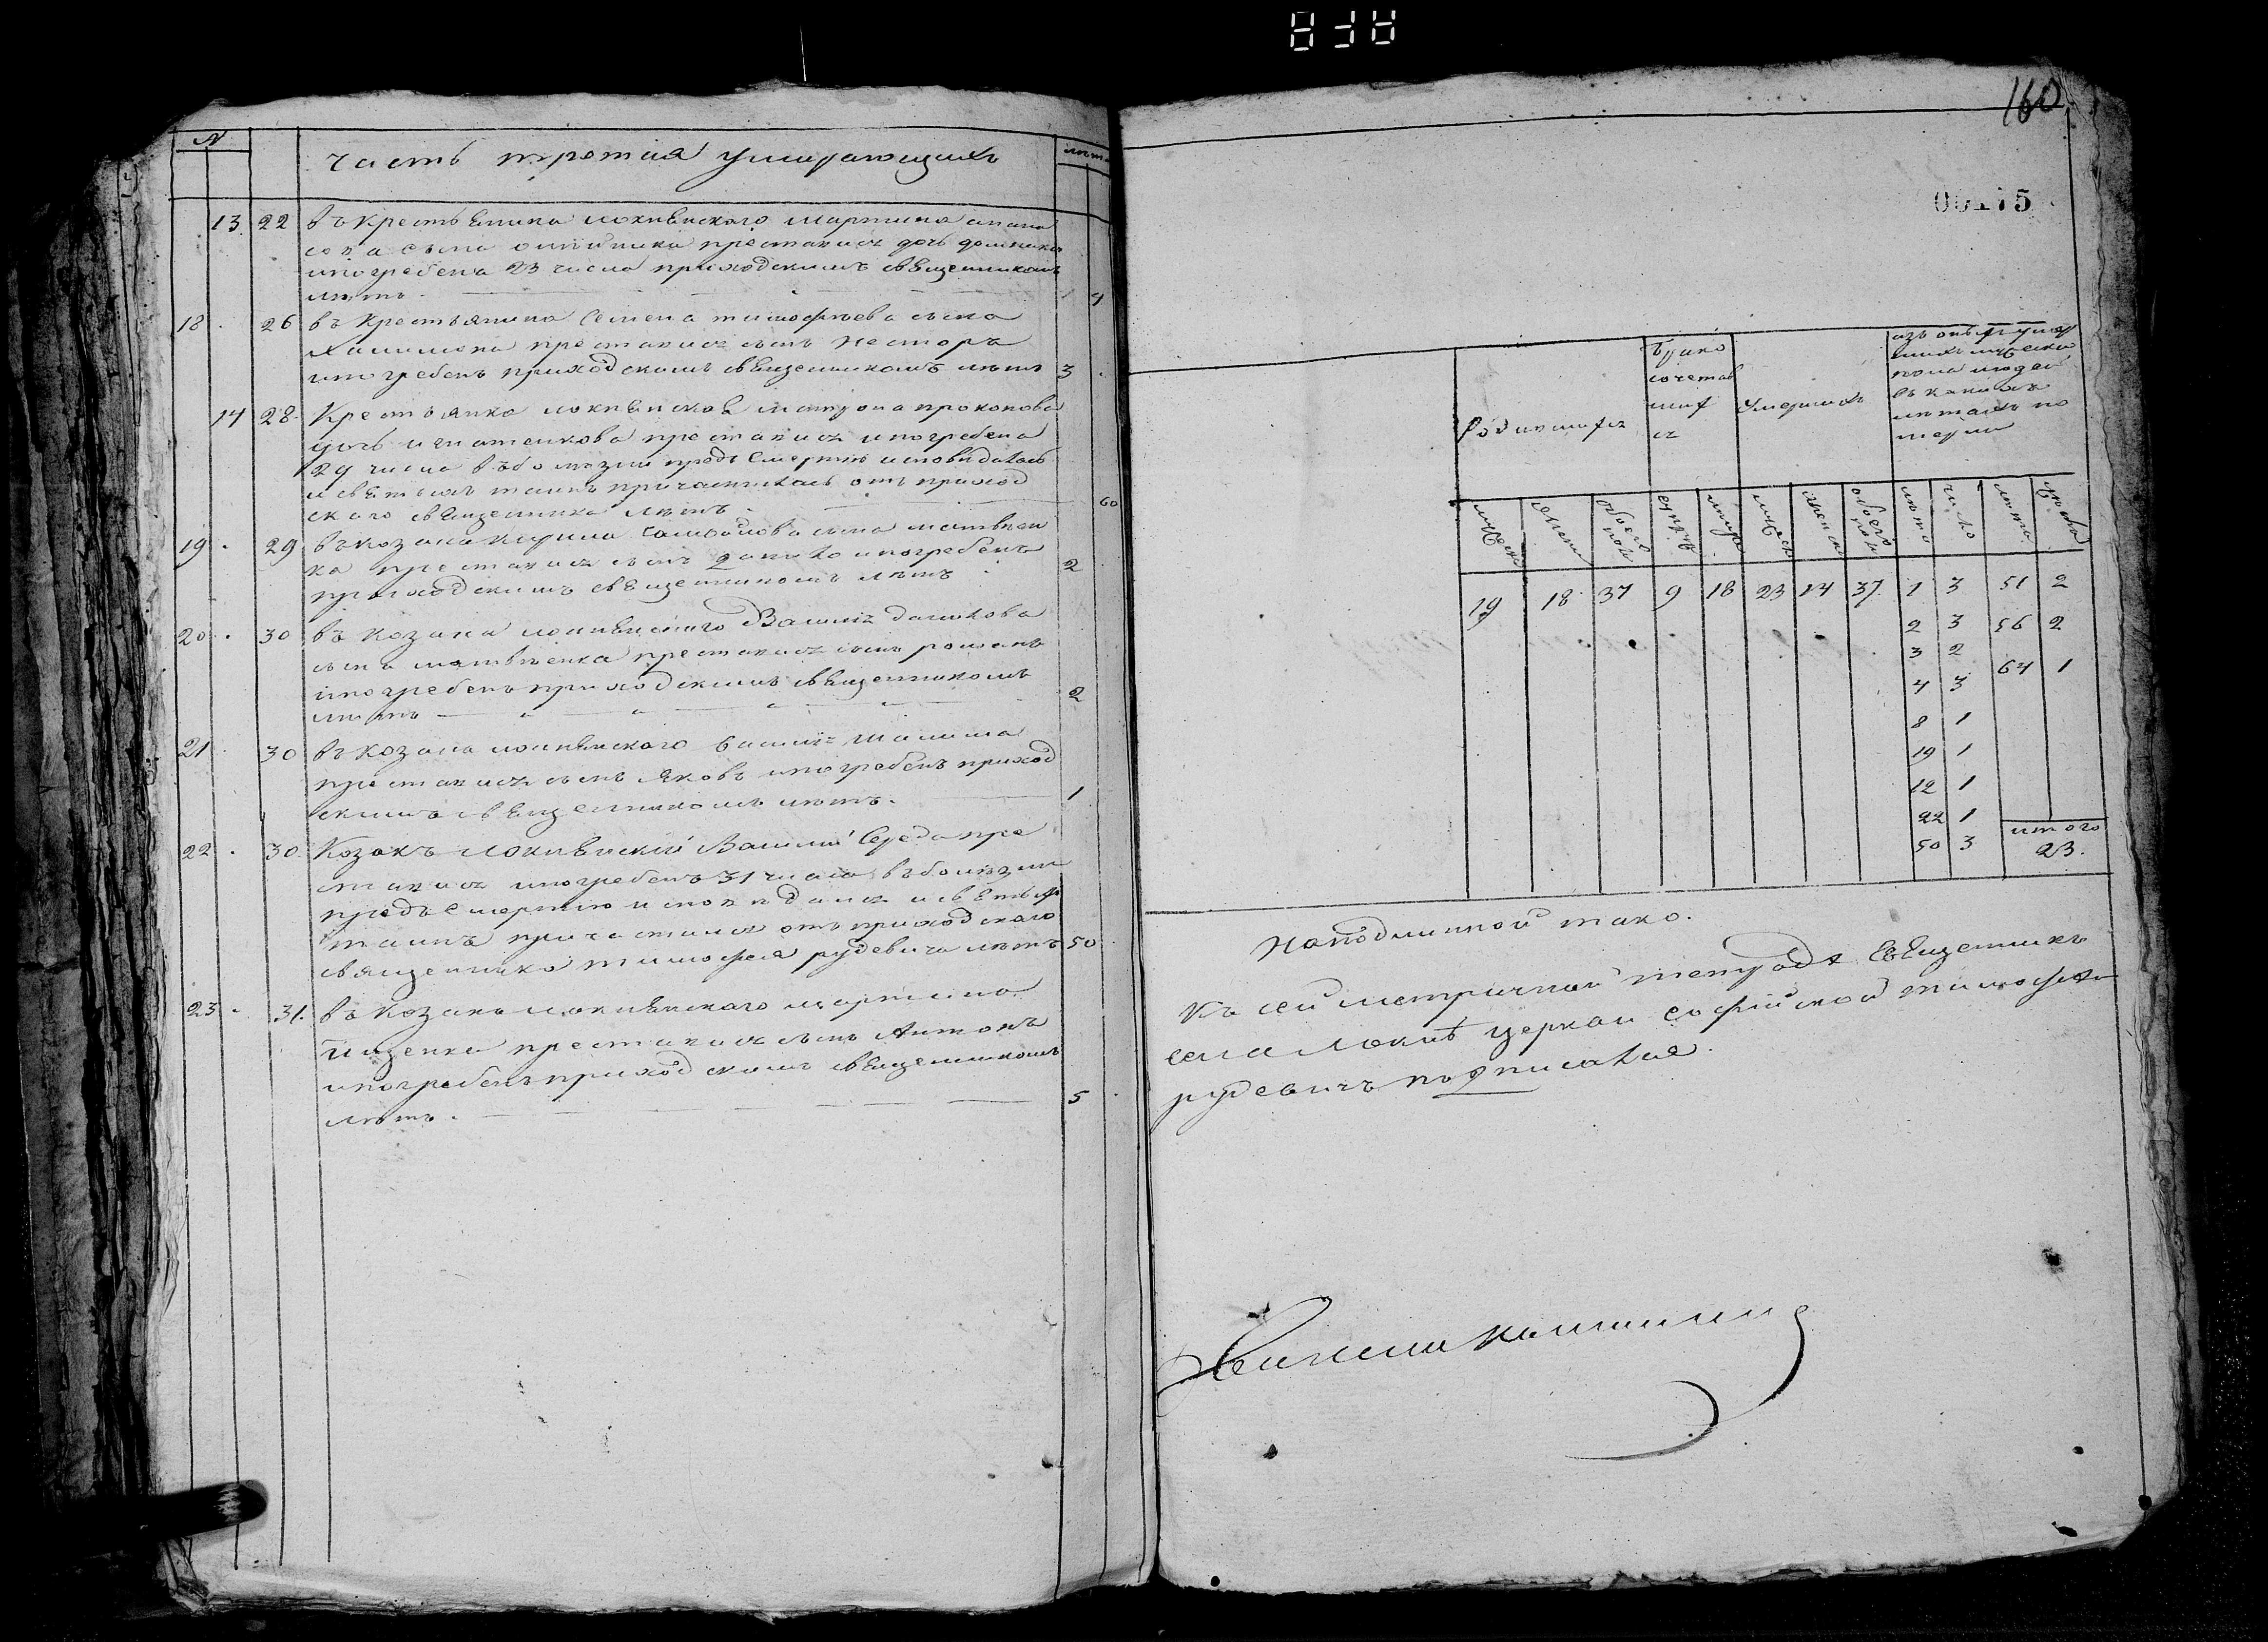 N
часть третия умирающихъ
лѣта
13 22 въ крестьянина локнѣнского мартина
сына преставися дочь
ипогребена 23 числа приходскимъ священникомъ
лѣтъ 4
18 26 въ крестьянина Семена тимофѣева сына
преставися сынъ несторъ
ипогребенъ приходскимъ священникомъ лѣтъ 3
14 28 Крестьянка матрона прокопова
дочь игнатенкова преставися ипогребена
29 числа въболѣзни предъ смертию исповѣдалась
исвятыхъ таинъ причастилась отъ приход
ского священника лѣтъ 60
19 29 въ козака кирила сына матвѣен
ка преставися сынъ данило ипогребенъ
приходскимъ священникомъ лѣтъ 2
20 30 въ козака локнѣнского Василия данилова
сына матвѣенка преставися сынъ романъ
ипогребенъ приходскимъ священникомъ
лѣтъ 2
21 30 въ козака локнѣнского василия
преставися сынъ яковъ ипогребенъ приход
скимъ священникомъ лѣтъ 1
22 30 Козакъ локнѣнский Василий Середа пре
ставися ипогребенъ 31 числа въболѣзни
предъ смертию исповѣдался исвятыхъ
таинъ причастился отъ приходского
священника тимофея рудевича лѣтъ 50
23 31 въ козака локнѣнского мартина
преставися сынъ Антонъ
ипогребенъ приходскимъ священникомъ
лѣтъ 5
160
00175
родившихся
брако
сочетав
ших
ся
умершихъ
изъ онихъ умер
шихъ мужеска
пола людей
въ какихъ
лѣтахъ по
мерли
мужеска женска обоего пола мужеска женска обоего пола лѣта число лѣта число
19 18 37 9 18 23 14 37 1 3 51 2
2 3 56 2
3 2
4 3 64 1
8 1
19 1
12 1
22 1
50 3
итого
23
наподлинной тако
Къ сей метричной тетрадѣ Священникъ
села локнѣ церкви софийской тимофей
рудевичъ подписался